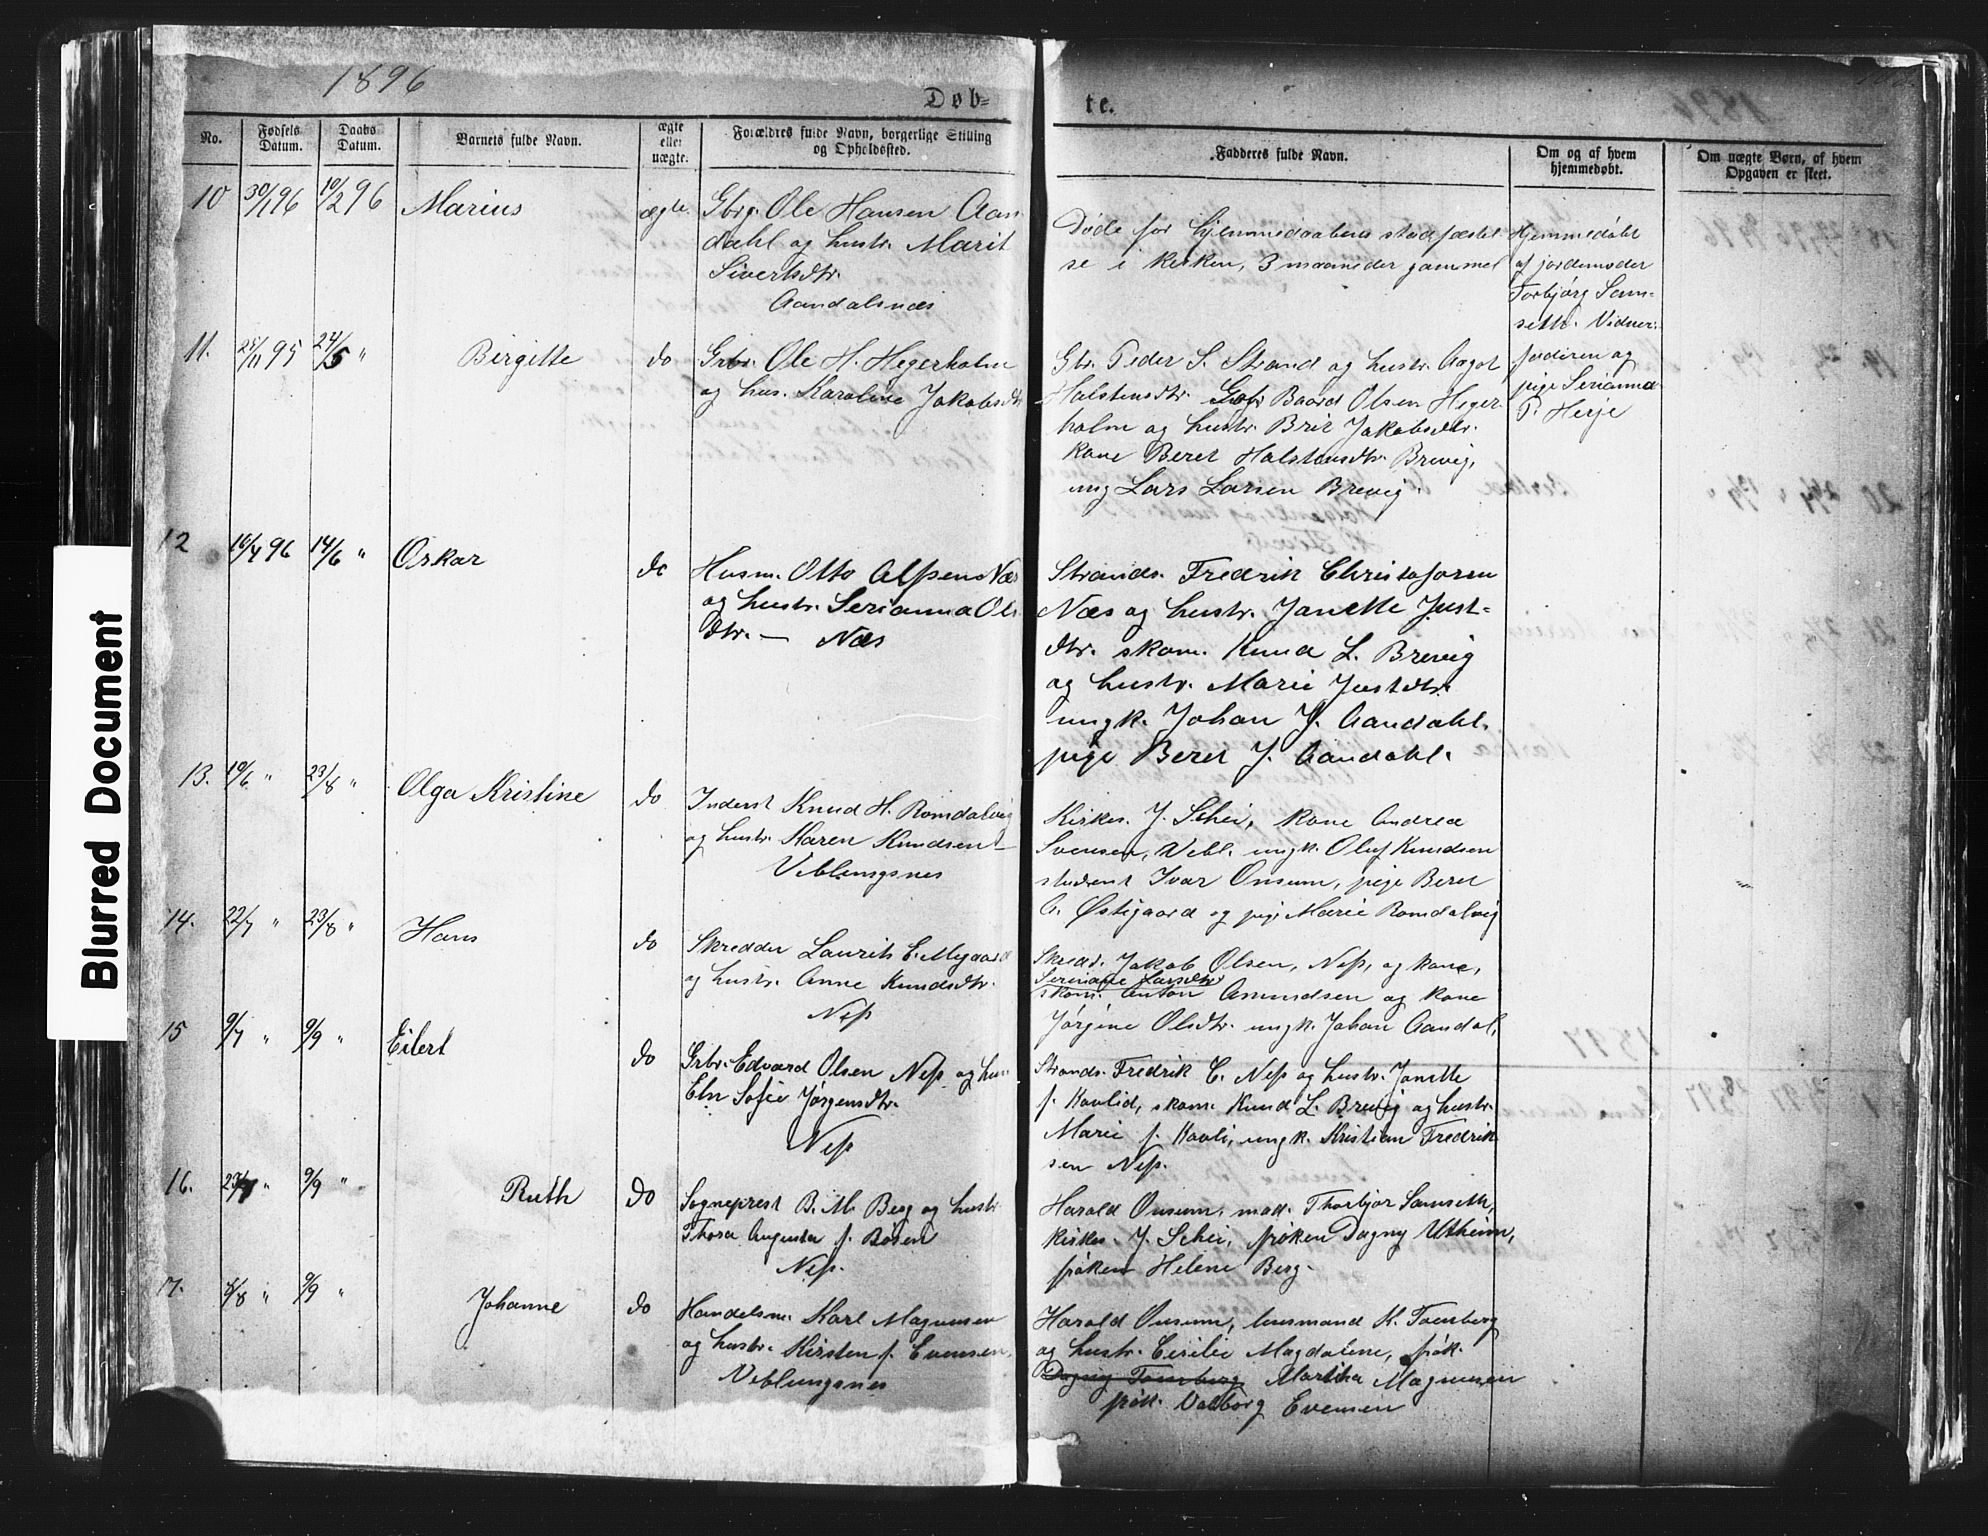 1896
Døb-
te.
No.
Fødsels Datum.
Daabs Datum.
Barnets fulde Navn.
ægte eller uægte.
Forældres fulde Navn, borgerlige Stilling og Opholdssted.
Fadderes fulde Navn.
Om og af hvem hjemmedøbt.
Om uægte Børn, af hvem Opgaven er skeet.
10 30/1 96 10/2 96 Marius ægte. Gbrg. Ole Hansen Aan-
dahl og hustr. Marit
Sivertsdtr.
Aandalsnæs
Døde før hjemmedaabens stadfæstel-
se i kirken, 3 maaneder gammel
Hjemmedøbt
af jordemoder
Torbjørg Sam-
seth. Vidner:
faderen og
pige Serianna
P. Herje
11. 25/11 95 24/5 " Birgitte do Grbr. Ole H. Hegerholm
og hus. Karoline Jakobsdtr
Gbr. Peder S. Strand og hustr. Aagot
Halstensdtr. Gbr Baard Olsen Heger-
holm og hustr. Brit Jakobsdtr.
kone Beret Halstensdtr. Brevig,
ung Lars Larsen Brevig.
12 16/4 96 14/6 " Oskar do Husm. Otto Alfsen Næs
og hustr. Serianna Ols
dtr. — Næs
Strands. Fredrik Christofersen
Næs og hustr. Janette Just-
dtr. skom. Knud L. Brevig
og hustr. Marie Justdtr.
ungk. Johan J. Aandahl.
pige Beret J. Aandahl.
13. 19/6 " 23/8 " Olga Kristine do Inderst Knud H. Romdalsvig
og hustr. Karen Knudsen —
Veblungsnes
Kirkes. J. Schei, kone Andrea
Svensen, Vebl. ungk. Oluf Knudsen
student Ivar Onsum, pige Beret
A. Østigaard og pige Marie Romdalsvig
14. 22/7 " 23/8 " Hans do Skredder Laurits E. Mygaard
og hustr. Anne Knudsdtr.
Nes̈s
Skredd. Jakob Olsen, Ness, og kone,
Seriane Larsdtr
skom. Anton Amundsen og kone
Jørgine Olsdtr. ungk. Johan Aandal,
15 9/7 " 9/9 " Eilert do Grbr. Edvard Olsen Ness og hus
Eln Sofie Jørgensdtr.
Ness
Strands. Fredrik C. Ness og hustr. Janette
f. Havlid, skom. Knud L. Brevig og hustr.
Marie f. Havli, ungk. Kristian Fredrik
sen Ness.
16. 23/7 " 9/9 " Ruth do Sogneprest B. M. Berg og hustr
Thora Augusta f. Bøsen
Ness.
Harald Onsum, mad. Thorbjør Samseth,
kirkes. J. Schei, frøken Dagny Utheim,
frøken Helene Berg.
17. 8/8 " 9/9 " Johanne do Handelsm. Karl Magnusen
og hustr. Kirsten f. Evensen,
Veblungsnes
Harald Onsum, husmand K. Tomberg
og hustr. Cecilie Magdalene, frøk.
Dagny Tomberg Martha Magnusen
frøk. Valborg Evensen
1897
Blurred Document